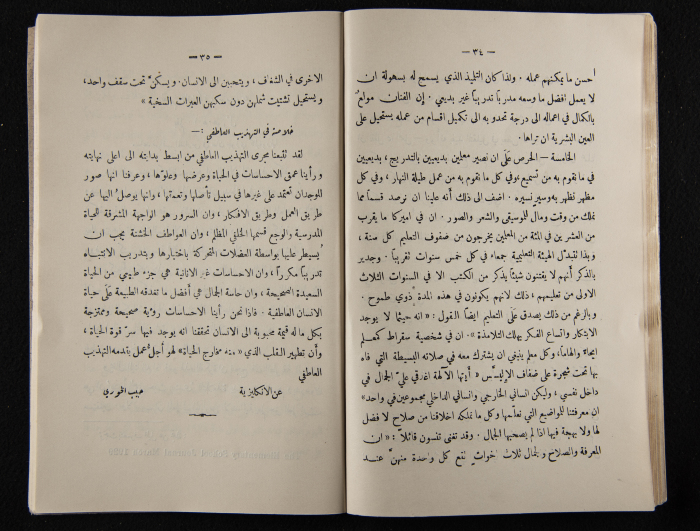 — ٣٤ —
أحسن ما يمكنهم عمله . ولذا كان التلميذ الذي يسمح له بسهولة ان
لا يعمل افضل ما وسعه مدرباً تدريباً غير بديعي . إن الفنان مولع
بالكمال في اعماله الى درجة تحدو به الى تكميل اقسام من عمله يستحيل على
العين البشرية ان تراها .
الخامسة — الحرص على ان نصير معلمين بديعيين بالتدريج ، بديعيين
في ما نقوم به من تسميع ، وفي كل ما نقوم به من عمل طيلة النهار ، وفي كل
مظهر نظهر به وسير نسيره . اضف الى ذلك أنه علينا ان نرصد قسماً مما
نملك من وقت ومال للموسيقى والشعر والصور . ان في اميركا ما يقرب
من العشرين في المئة من المعلمين يخرجون من صفوف التعليم كل سنة ،
وبذا تتبدل الهيئة التعليمية جمعاء في كل خمس سنوات تقريباً . وجدير
بالذكر أنهم لا يقتنون شيئاً يذكر من الكتب الا في السنوات الثلاث
الاولى من تعليمهم ، ذلك لانهم يكونون في هذه المدة ذوي طموح .
وبالرغم من ذلك يصدق على التعليم ايضاً القول : « انه حيثما لا يوجد
الابتكار واتساع الفكر يهلك التلامذة » . ان في شخصية سقراط كمعلم
ايحاءً والهاماً ، وكل معلم ينبغي ان يشترك معه في صلاته البسيطة التي فاه
بها تحت شجرة على ضفاف الإليسّس « أيتها الآلهة اغدقي عليّ الجمال في
داخل نفسي ، وليكن انساني الخارجي وانساني الداخلي مجموعين في واحد »
ان معرفتنا للمواضيع التي نعلّمها وكل ما تملكه اخلاقنا من صلاح لا فضل
لها ولا بهجة فيها اذا لم يصحبها الجمال . وقد تغنى تنسون قائلاً : « ان
المعرفة والصلاح والجمال ثلاث اخوات تقع كل واحدة منهنّ عند
— ٣٥ —
الاخرى في الشغاف ، ويتحببن الى الانسان . ويسكنّ تحت سقف واحد ،
ويستحيل تشتيت شملهن دون سكبهن العبرات السخية »
خلاصة في التهذيب العاطفي : —
لقد تتبعنا مجرى التهذيب العاطفي من ابسط بدايته الى اعلى نهايته
ورأينا عمق الاحساسات في الحياة وعرضها وعلوّها ، وعرفنا انها صور
للوجدان تعتمد على غيرها في سبيل تأصلها ونعمتها ، وانها يوصل اليها عن
طريق العمل وطريق الافكار ، وان السرور هو الواجهة المشرقة للحياة
المدرسية والوجع قسمها الخلفي المظلم ، وان العواطف الخشنة يجب ان
يُسيطر عليها بواسطة العضلات المتحركة باختبارها وبتدريب الانتباه
تدريباً مكرراً ، وان الاحساسات غير الانانية هي جزء طبيعي من الحياة
السعيدة الصحيحة ، وان حاسة الجمال هي أفضل ما تغدقه الطبيعة على حياة
الانسان العاطفية . فاذا نحن رأينا الاحساسات رؤية صحيحة وممتزجة
بكل ما له قيمة محبوبة الى الانسان تحققنا انه يوجد فيها سرّ قوة الحياة ،
وأن تطهير القلب الذي « منه مخارج الحياة » لهو أجلّ عمل يقدمه التهذيب
العاطفي
عن الانكليزية
حبيب الخوري